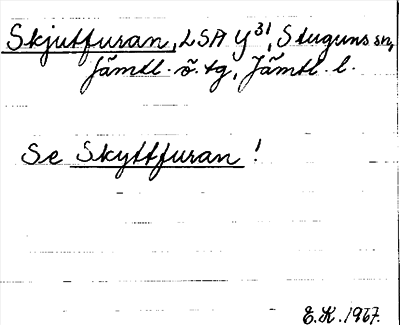 Skjutfuran, LSA Y³¹, Stuguns sn,
Jämtl. ö. tg, Jämtl. l.
Se Skyttfuran!
E.K. 1967.